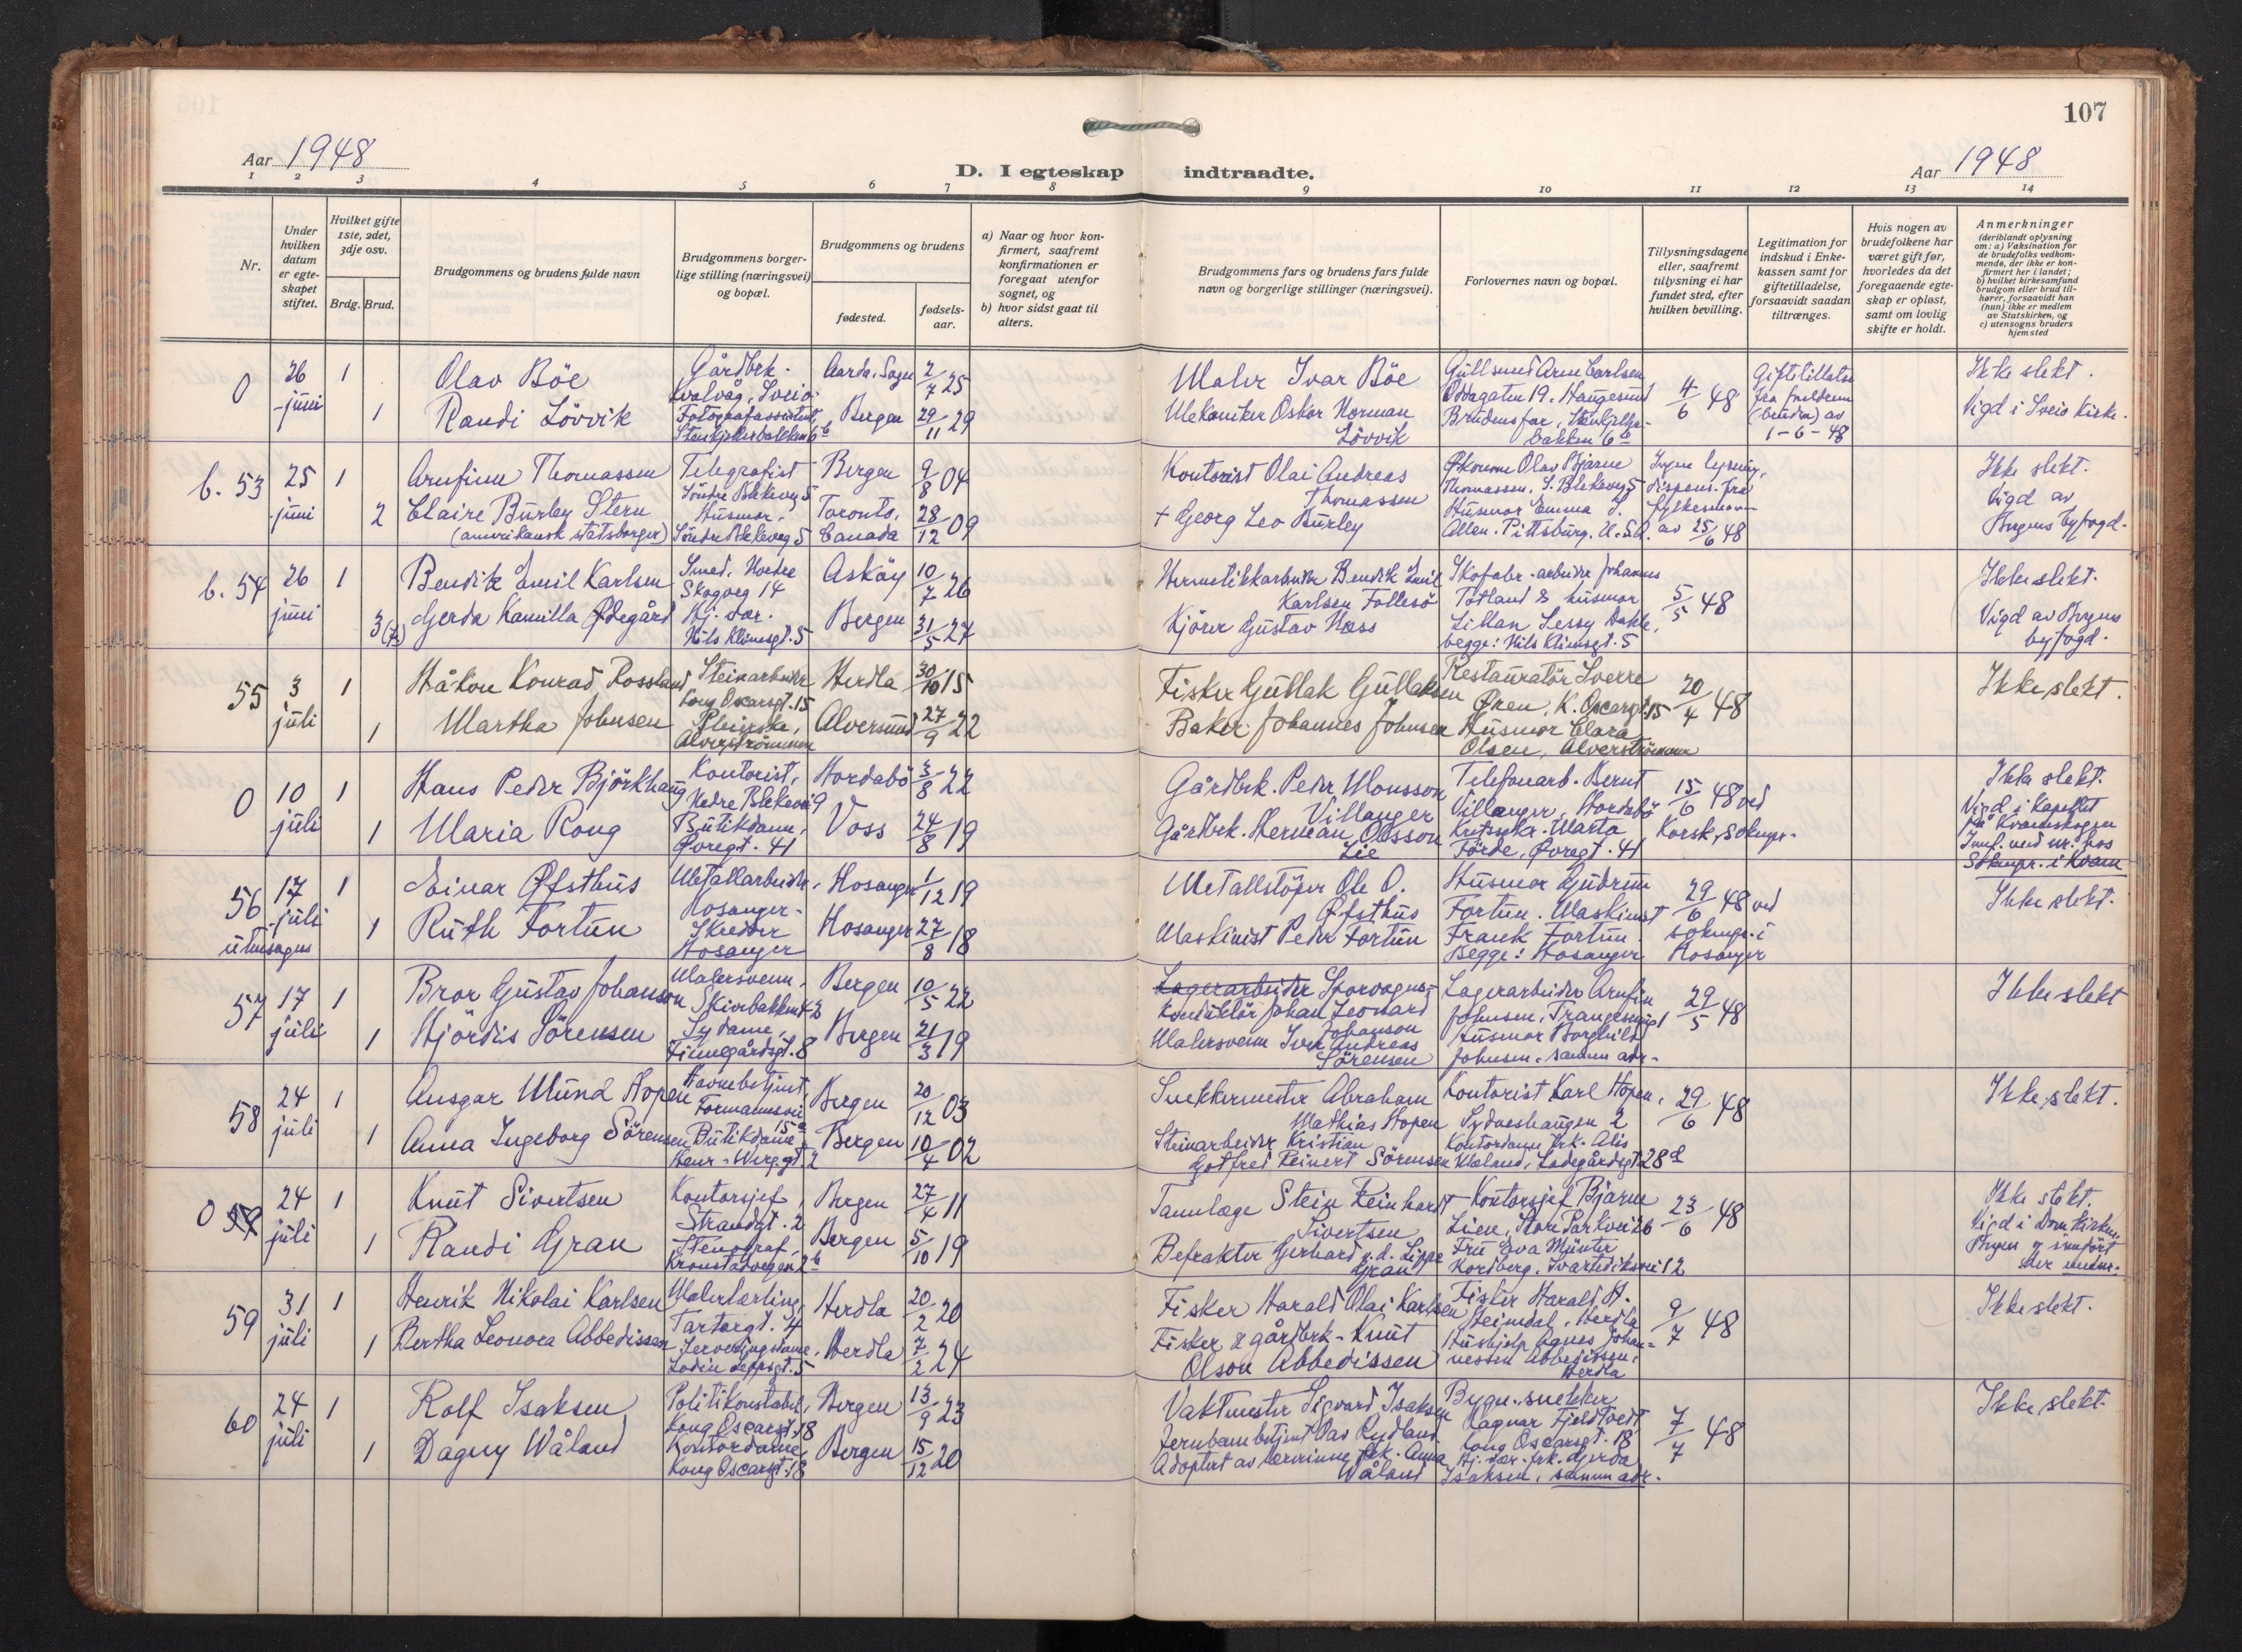 107
Aar 1948
D. I egteskap indtraadte.
Aar 1948
1 2 3 4 5 6 7 8 9 10 11 12 13 14
Nr.
Under hvilken datum er egteskapet stiftet.
Hvilket gifte 1ste, 2det, 3dje osv.
Brdg. Brud.
Brudgommens og brudens fulde navn
Brudgommens borgerlige stilling (næringsvei) og bopæl.
Brudgommens og brudens
fødested.
fødselsaar.
a) Naar og hvor konfirmert, saafremt konfirmationen er foregaat utenfor sognet, og
b) hvor sidst gaat til alters.
Brudgommens fars og brudens fars fulde navn og borgerlige stillinger (næringsvei).
Forlovernes navn og bopæl.
Tillysningsdagene eller, saafremt tillysning ei har fundet sted, efter hvilken bevilling.
Legitimation for indskud i Enkekassen samt for giftetilladelse, forsaavidt saadan tiltrænges.
Hvis nogen av brudefolkene har været gift før, hvorledes da det foregaaende egteskap er opløst, samt om lovlig skifte er holdt.
Anmerkninger
(deriblandt oplysning om: a) Vaksination for de brudefolks vedkommende, der ikke er konfirmert her i landet;
b) hvilket kirkesamfund brudgom eller brud tilhører, forsaavidt han (hun) ikke er medlem av Statskirken, og
c) utensogns bruders hjemsted
0 26 juni 1 Olav Böe Gårdbrk. Kvalvåg, Sveio Aarda, Sogn 2/7 25 Maler Ivar Böe Gullsmed Arne Carlsen Oddagaten 19, Haugesund 4/6 48 Giftetillatse fra foreldrene (bruden) av 1-6-48 Ikke slekt.
1 Randi Lövvik Fotografassistent Bergen 29/11 29 Mekaniker Oskar Norman Lövvik Brudens far, bakken 6b Vigd i Sveio kirke.
b. 53 25 juni 1 Arnfinn Thomassen Telegrafist Söndre Blekevg 5 Bergen 9/8 04 Kontorist Olai Andreas Thomassen Økonom Olav Bjarne Thomassen, S. Blekevg 5 Ingen lysning, dispens. fra fylkesmannen av 25/6 48 Ikke slekt.
2 Claire Burley Stern (amerikansk statsborger) Husmor, Söndre Blekeveg 5 Toronto, Canada 28/12 09 + Georg Leo Burley Husmor Emma J. Allen. Pittsburg. U.S.A. Vigd av Bergens byfogd.
b. 54 26 juni 1 Bendik Emil Karlsen Smed, Nordre Skogveg 14 Asköy 10/7 26 Hermetikkarbeider Bendik Emil Karlsen Follesö Skofabr.-arbeider Johannes Totland & husmor 5/5 48 Ikke slekt.
3 Gjerda Kamilla Ødegård Hj. dør. Nils Klimsgt. 5 Bergen 31/5 27 Kjörer Gustav Næss Lillan Lessy Dahle, begge: Nils Klimsgt. 5 Vigd av Bergens byfogd.
55 3 juli 1 Håkon Konrad Rossland Steinarbeider Kong Oscarsgt. 15 Herdla 30/10 15 Fisker Gullak Gullaksen Restauratör Sverre Øren, K. Oscarsgt. 15 20/4 48 Ikke slekt.
1 Martha Johnsen Pleierske, Alverströmmen Alversund 27/9 22 Baker Johannes Johnsen Husmor Clara Olsen, Alverströmmen
0 10 juli 1 Hans Peder Björkhaug Kontorist, Nedre Blekevei 9 Hordabö 3/8 22 Gårdbrk. Peder Monsson Villanger Telefonarb. Bernt Villanger, Hordabö 15/6 48 ved Korsk. soknepr. Ikke slekt.
1 Maria Rong Butikdame, Øvregt. 41 Voss 24/8 19 Gårdbrk. Herman Olsson Lie Marta Förde, Øvregt. 41 Vigd i kapellet på Kvamskogen Innf. med nr. hos Soknepr. i Kvam
56 utensogns 17 juli 1 Einar Øfsthus Metallarbeider, Hosanger Hosanger 1/12 19 Metallstöper Ole O. Øfsthus Husmor Gudrun Fortun. Maskinist 29/6 48 ved soknepr. i Hosanger Ikke slekt.
1 Ruth Fortun Skredder Hosanger Hosanger 27/8 18 Maskinist Peder Fortun Frank Fortun. Begge: Hosanger
57 17 juli 1 Bror Gustav Johanson Malersvenn, Skivebakken 42 Bergen 10/5 22 Lagerarbeider Sporvognskonduktör Johan Leonard Johanson Lagerarbeider Arnfin Johnsen, Trangesmug 1 29/5 48 Ikke slekt
1 Hjördis Sörensen Sydame, Finnegårdsgt. 8 Bergen 21/3 19 Malersvenn Iver Andreas Sörensen Husmor Borghild Johnsen, samme adr.
58 24 juli 1 Ansgar Mund Hopen Havnebetjent, Formannsvei 15a Bergen 20/12 03 Snekkermester Abraham Mathias Hopen Kontorist Karl Hopen, Sydneshaugen 2 29/6 48 Ikke slekt.
1 Anna Ingeborg Sörensen Butikdame Henr. Werg.gt. 2 Bergen 10/4 02 Steinarbeider Kristian Gotfred Reinert Sörensen Kontordame frk. Alis Mæland, Ladegårdsgt. 28d
0 59 24 juli 1 Knut Sivertsen Kontorsjef, Strandgt. 2 Bergen 27/4 11 Tannlæge Stein Reinhardt Sivertsen Kontorsjef Bjarne Lien, Store Parkvei 6 23/6 48 Ikke slekt.
1 Randi Gran Stenograf, Kronstadvegen 2b Bergen 5/10 19 Befrakter Gerhard v.d. Lippe Gran Fru Eva Münter Kordberg. Svartediksvei 12 Vigd i Domkirken, Bergen og innfört der
59 31 juli 1 Henrik Nikolai Karlsen Malerlærling, Tartargt. 4 Herdla 20/2 20 Fisker Harald Olai Karlsen Fisker Harald H. Heimdal, Herdla 9/7 48 Ikke slekt.
1 Bertha Leonora Abbedissen Serveringsdame, Lodin Leppsgt. 5 Herdla 7/2 24 Fisker & gårdbrk. Knut Olson Abbedissen Hushjelp Agnes Johannessen Abbedissen, Herdla
60 24 juli 1 Rolf Isaksen Politikonstabel, Kong Oscarsgt. 18 Bergen 13/9 23 Vaktmester Sigvard Isaksen Bygn.-snekker Ragnar Fjeldtvedt, Kong Oscarsgt. 18 7/7 48 Ikke slekt.
1 Dagny Wåland Kontordame, Kong Oscarsgt. 18 Bergen 15/12 20 Jernbanebetjent Oas Rydland Adoptert av lærerinne frk. Anna Wåland Hj. dør. frk. Gjerda Isaksen, samme adr.